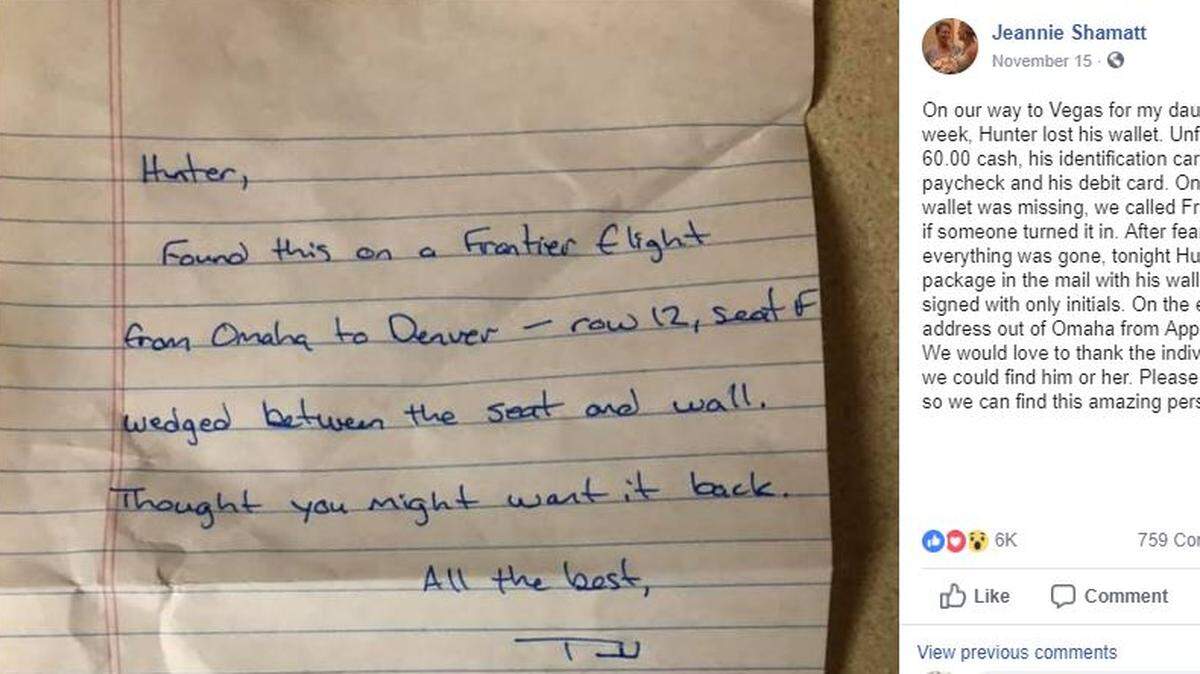 Hunter,
Found this on a Frontier flight
from Omaha to Denver – row 12, seat F
wedged between the seat and wall.
Thought you might want it back.
All the best,
Jeannie Shamatt
November 15 ·
On our way to Vegas for my dau
week, Hunter lost his wallet. Unf
60.00 cash, his identification car
paycheck and his debit card. On
wallet was missing, we called Fr
if someone turned it in. After fea
everything was gone, tonight Hu
package in the mail with his wall
signed with only initials. On the e
address out of Omaha from App
We would love to thank the indiv
we could find him or her. Please
so we can find this amazing pers
6K
759 Cor
Like
Comment
View previous comments